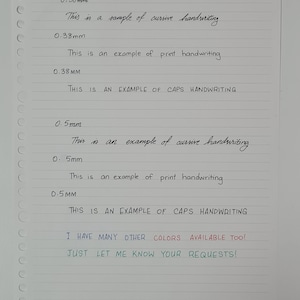 This is a example of cursive handwriting
0.38mm
This is an example of print handwriting
0.38MM
THIS IS AN EXAMPLE OF CAPS HANDWRITING
0.5mm
This is an example of cursive handwriting
0.5mm
This is an example of print handwriting
0.5MM
THIS IS AN EXAMPLE OF CAPS HANDWRITING
I HAVE MANY OTHER COLORS AVAILABLE TOO!
JUST LET ME KNOW YOUR REQUESTS!